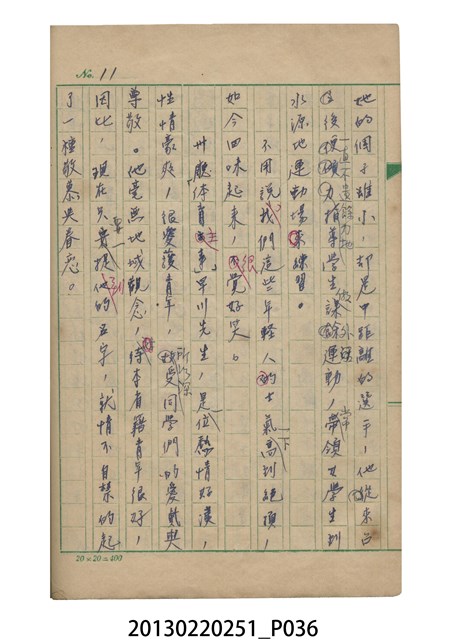 No. 11
她的個子雖小，却是中距離的選手，他從來
後援，一直不遺餘力地指導學生課餘做外面運動，常帶領女學生到
水源地運動場來練習。
不用說我們這些年輕人的士氣一下高到絕頂，
如今回味起來，很覺好笑。
卅廳体育主事早川先生，是位熱情好漢，
性情豪爽，很愛護青年，所以深受同學們的愛戴與
尊敬。他毫無地域觀念，待本省籍青年很好，
因此，現在只要一提到他的名字，就情不自禁的起
了一種敬慕與眷恋。
20×20=400
20130220251_P036